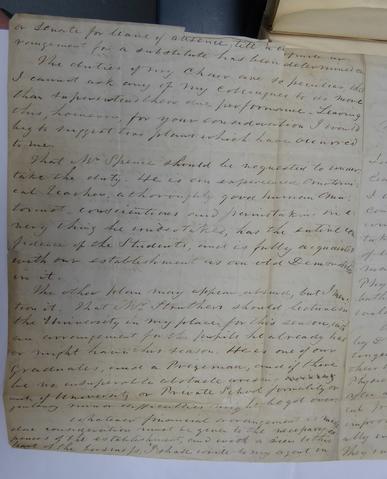 or Senate for leave of absence, till a definite ar-
rangement for a substitute has been determined on
The duties of my Chair are so peculiar, that
I cannot ask any of my Colleagues to do more
than superintend there due performance. Leaving
this, however, for your consideration I would
beg to suggest two plans which have occurred
to me.
That Mr Spence should be requested to under-
take the duty. He is an experienced Anatomi-
cal Teacher, a thoroughly good human Ana-
tomist - conscientious and painstaking in e-
very thing he undertakes, has the entire con
fidence of the Students, and is fully acquainted
with our establishment as an old Demonstrator
in it.
The other plan may appear absurd, but I men-
tion it. That Mr Struthers should lecture in
the University in my place, for this season, with
an arrangement for the pupils he already has
or might have this season. He is one of our
Graduates, and a Prizeman, and if there
be no insuperable obstacle
of University or Private School
minor difficulties might be got over.
Whatever financial arrangement is made
due consideration must be given to the necessary ex
penses of the establishment, and with a view to this
part of the business, I shall write to my agent in